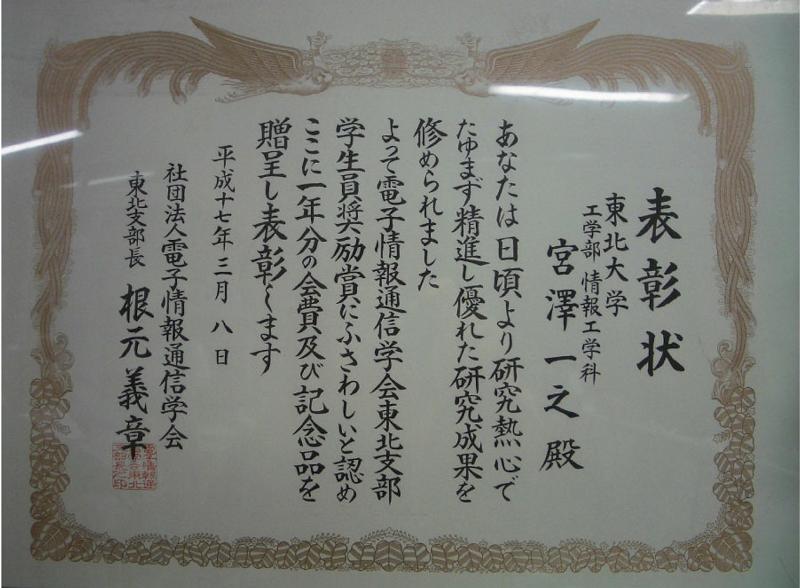 表彰状
東北大学
工学部 情報工学科
宮澤一之 殿
あなたは日頃より研究熱心で
たゆまず精進し優れた研究成果を
修められました
よって電子情報通信学会東北支部
学生員奨励賞にふさわしいと認め
ここに一年分の会費及び記念品を
贈呈し表彰します
平成十七年三月八日
社団法人電子情報通信学会
東北支部長 根元義章